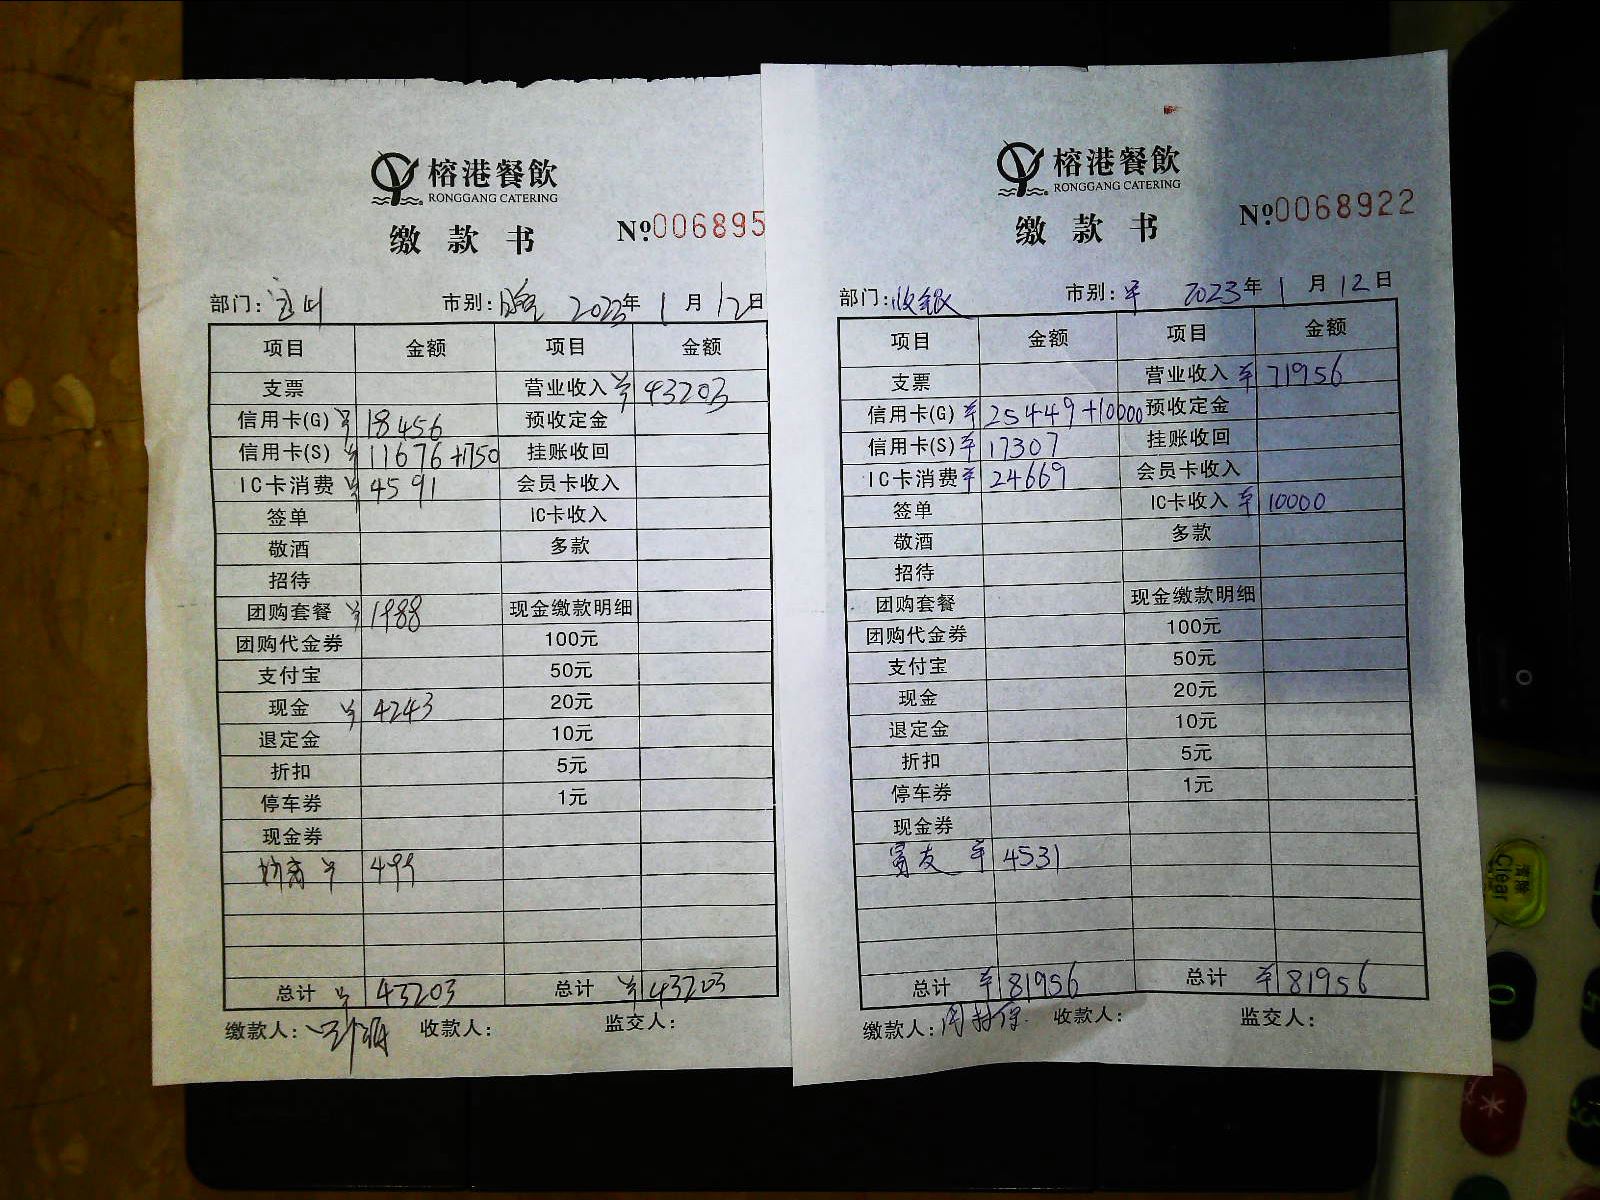 榕港餐飲
RONGGANG CATERING
缴款书
№006895
部门: 市别:晚 2023年1月12日
项目 金额 项目 金额
支票 营业收入 ¥43203
信用卡(G) ¥18456 预收定金
信用卡(S) ¥11676+1750 挂账收回
IC卡消费 ¥4591 会员卡收入
签单 IC卡收入
敬酒 多款
招待
团购套餐 ¥1988 现金缴款明细
团购代金券 100元
支付宝 50元
现金 ¥4243 20元
退定金 10元
折扣 5元
停车券 1元
现金券
¥499
总计 ¥43203 总计 ¥43203
缴款人: 收款人: 监交人:
榕港餐飲
RONGGANG CATERING
缴款书
№0068922
部门:收银 市别:早 2023年1月12日
项目 金额 项目 金额
支票 营业收入 ¥71956
信用卡(G) ¥25449+10000 预收定金
信用卡(S) ¥17307 挂账收回
IC卡消费 ¥24669 会员卡收入
签单 IC卡收入 ¥10000
敬酒 多款
招待
团购套餐 现金缴款明细
团购代金券 100元
支付宝 50元
现金 20元
退定金 10元
折扣 5元
停车券 1元
现金券
¥4531
总计 ¥81956 总计 ¥81956
缴款人: 收款人: 监交人:
清除
Clear
0
*